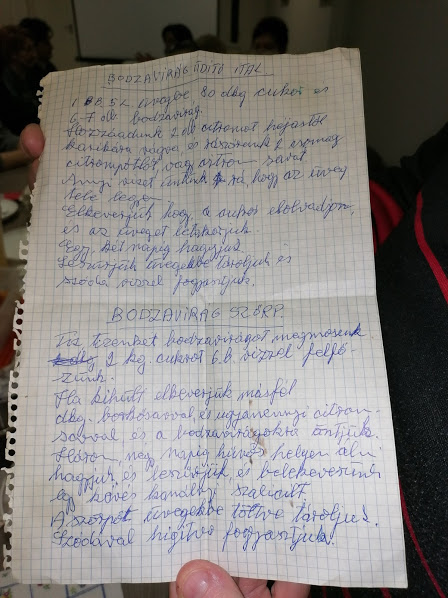 BODZAVIRÁG ÜDITŐ ITAL
1 5 L üvegbe, 80 dkg cukor és
6-7 db bodzavirág.
Hozzáadunk 2 db citromot héjastól
karikára vágva és teszünk 2 csomag
citrompótlót, vagy citrom savat
Annyi vizet öntünk rá, hogy az üveg
tele legyen
Elkeverjük hogy, a cukor elolvadjon,
és az üveget lekötjük.
Egy, két napig hagyjuk
Leszűrjük üvegekbe tároljuk és
szóda vizzel fogyasztjuk.
BODZAVIRÁG SZÖRP.
Tiz tizenkét bodzavirágot megmosunk
2 kg. cukrot 6 vizzel felfő-
zünk.
Ha kihült elkeverjük másfél
dkg. borkősavval, és ugyanennyi citrom-
savval és, a bodzavirágokra öntjük.
Három, négy napig hüvös helyen állni
hagyjuk, és leszürjük, és belekeverünk
egy kávés kanálnyi szalicilt.
A szörpöt üvegekbe töltve tároljuk.
Szódával higitva fogyasztjuk.